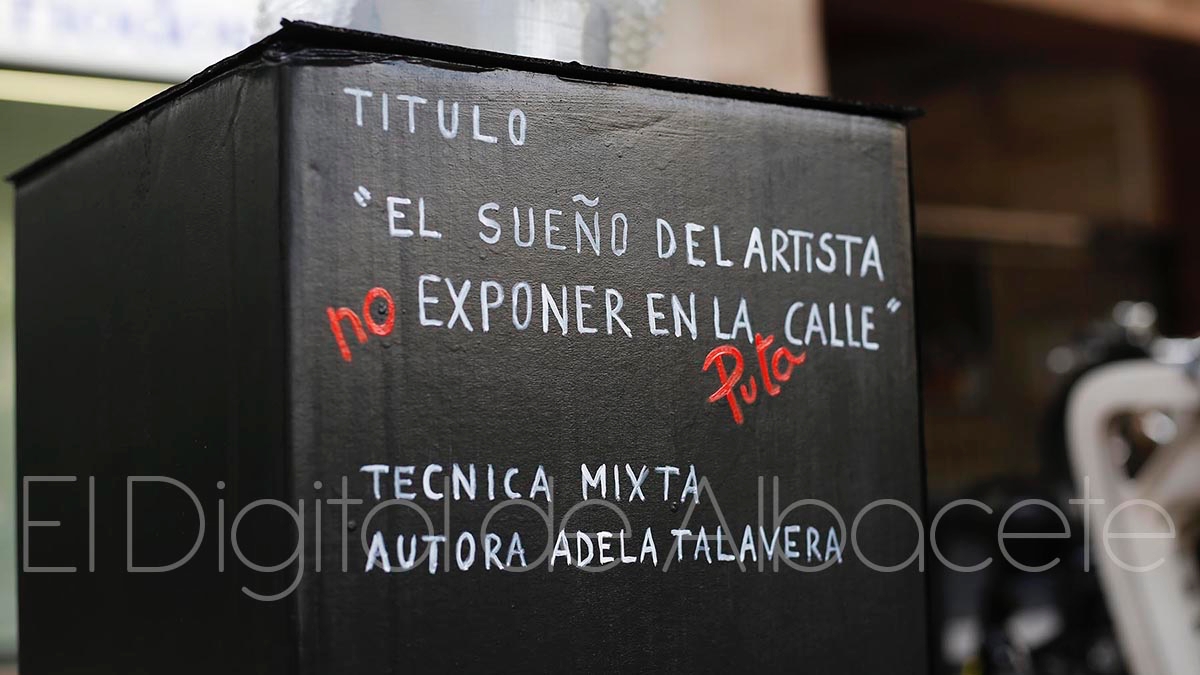 TITULO
"EL SUEÑO DEL ARTISTA
no EXPONER EN LA Puta CALLE"
TECNICA MIXTA
AUTORA ADELA TALAVERA
El Digital de Albacete